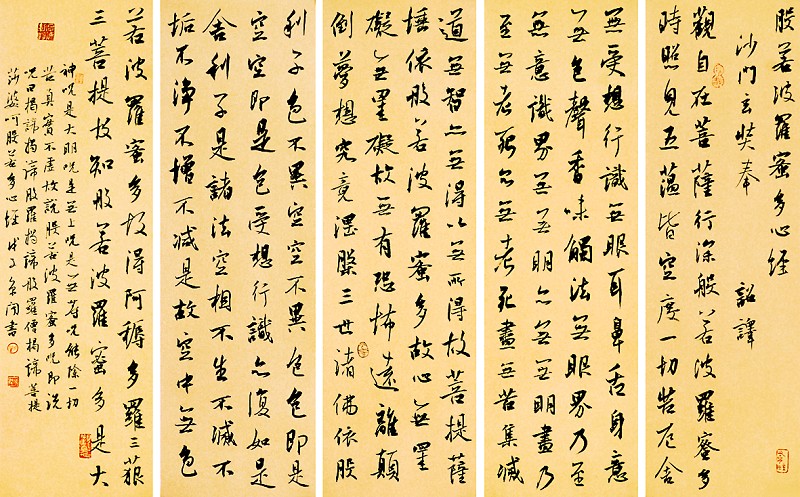 般若波羅蜜多心經
沙門玄奘奉 詔譯
觀自在菩薩行深般若波羅蜜多
時照見五蘊皆空度一切苦厄舍
無受想行識無眼耳鼻舌身意
無色聲香味觸法無眼界乃至
無意識界無無明亦無無明盡乃
至無老死亦無老死盡無苦集滅
道無智亦無得以無所得故菩提薩
埵依般若波羅蜜多故心無罣
礙無罣礙故無有恐怖遠離顛
倒夢想究竟涅槃三世諸佛依般
利子色不異空空不異色色即是
空空即是色受想行識亦復如是
舍利子是諸法空相不生不滅不
垢不淨不增不減是故空中無色
若波羅蜜多故得阿耨多羅三藐
三菩提故知般若波羅蜜多是大
神咒是大明咒是無上咒是無等咒能除一切
苦真實不虛故說般若波羅蜜多咒即說
咒曰揭諦揭諦般羅揭諦般羅僧揭諦菩提
莎婆呵般若多心經戊子書